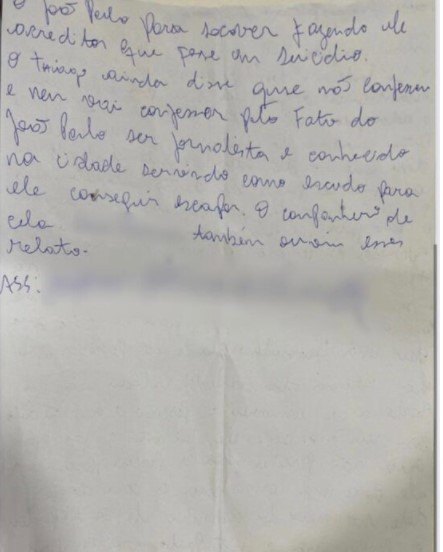 O João Paulo para socorer fazendo ele
acreditar que fose um suicidio.
O thiago ainda disse que não confessou
e nem vai confessar pelo Fato do
João Paulo ser jornalista e conhecido
na cidade servindo como escudo para
ele conseguir escapar. O companheiro de
cela também ouviu esses
relato.
ASS: